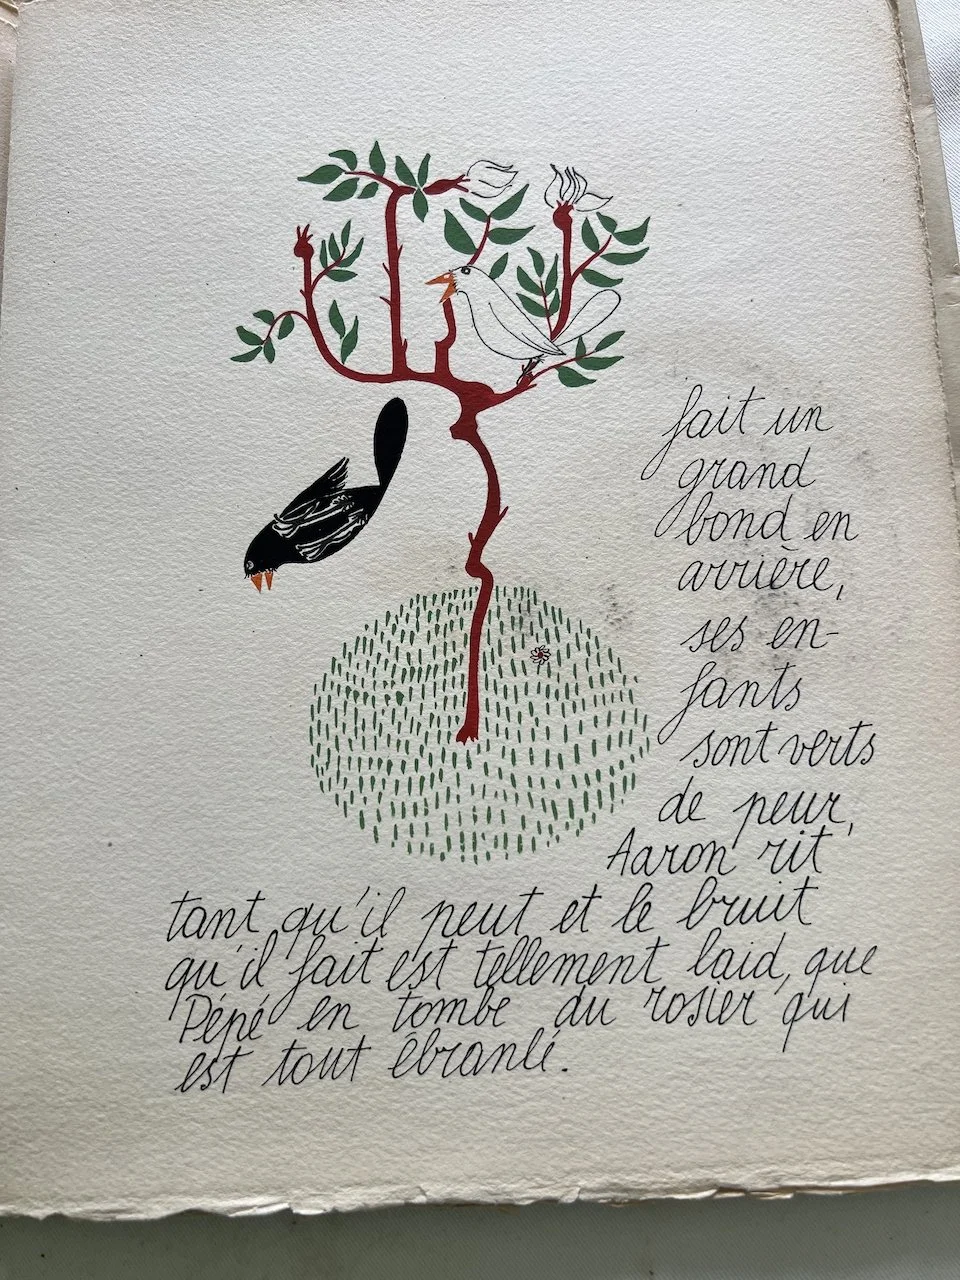 fait un
grand
bond en
arrière,
ses en-
fants
sont verts
de peur,
Aaron rit
tant qu'il peut et le bruit
qu'il fait est tellement laid, que
Pépé en tombe du rosier qui
est tout ébranlé.